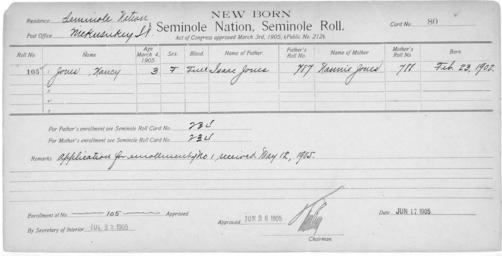 NEW BORN
Residence Seminole Nation
Seminole Nation, Seminole Roll.
Card No. 80
Post Office Mekusukey I.T.
Act of Congress approved March 3rd, 1905, (Public No. 212).
Roll No. Name Age March 4, 1905 Sex. Blood. Name of Father. Father's Roll No. Name of Mother Mother's Roll No. Born
105 1 Jones, Nancy 3 F Full Isaac Jones Nannie Jones Feb. 23, 1902.
For Father's enrollment see Seminole Roll Card No.
For Mother's enrollment see Seminole Roll Card No.
Remarks Application for enrollment No 1 received May 12, 1905.
Enrollment of No. 105 Approved
Approved JUN 1905
Date JUN 17 1905
By Secretary of Interior 1905
Chairman.